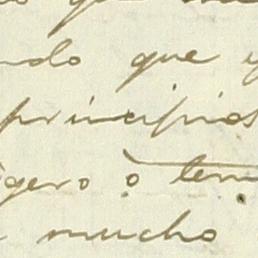 que
ndo que y
principios
gero ò tem
mucho